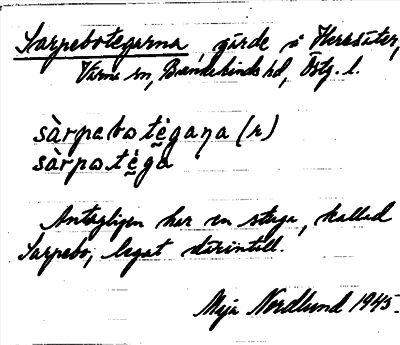 Sarpebotegarna, gärde i Herrsäter,
Värna sn, Bankekinds hd, Östg. l.
sàrpebotègaṇa (r)
sàrpotèga
Antagligen har en stuga, kallad
Sarpebo, legat därintill.
Maja Nordlund 1945.